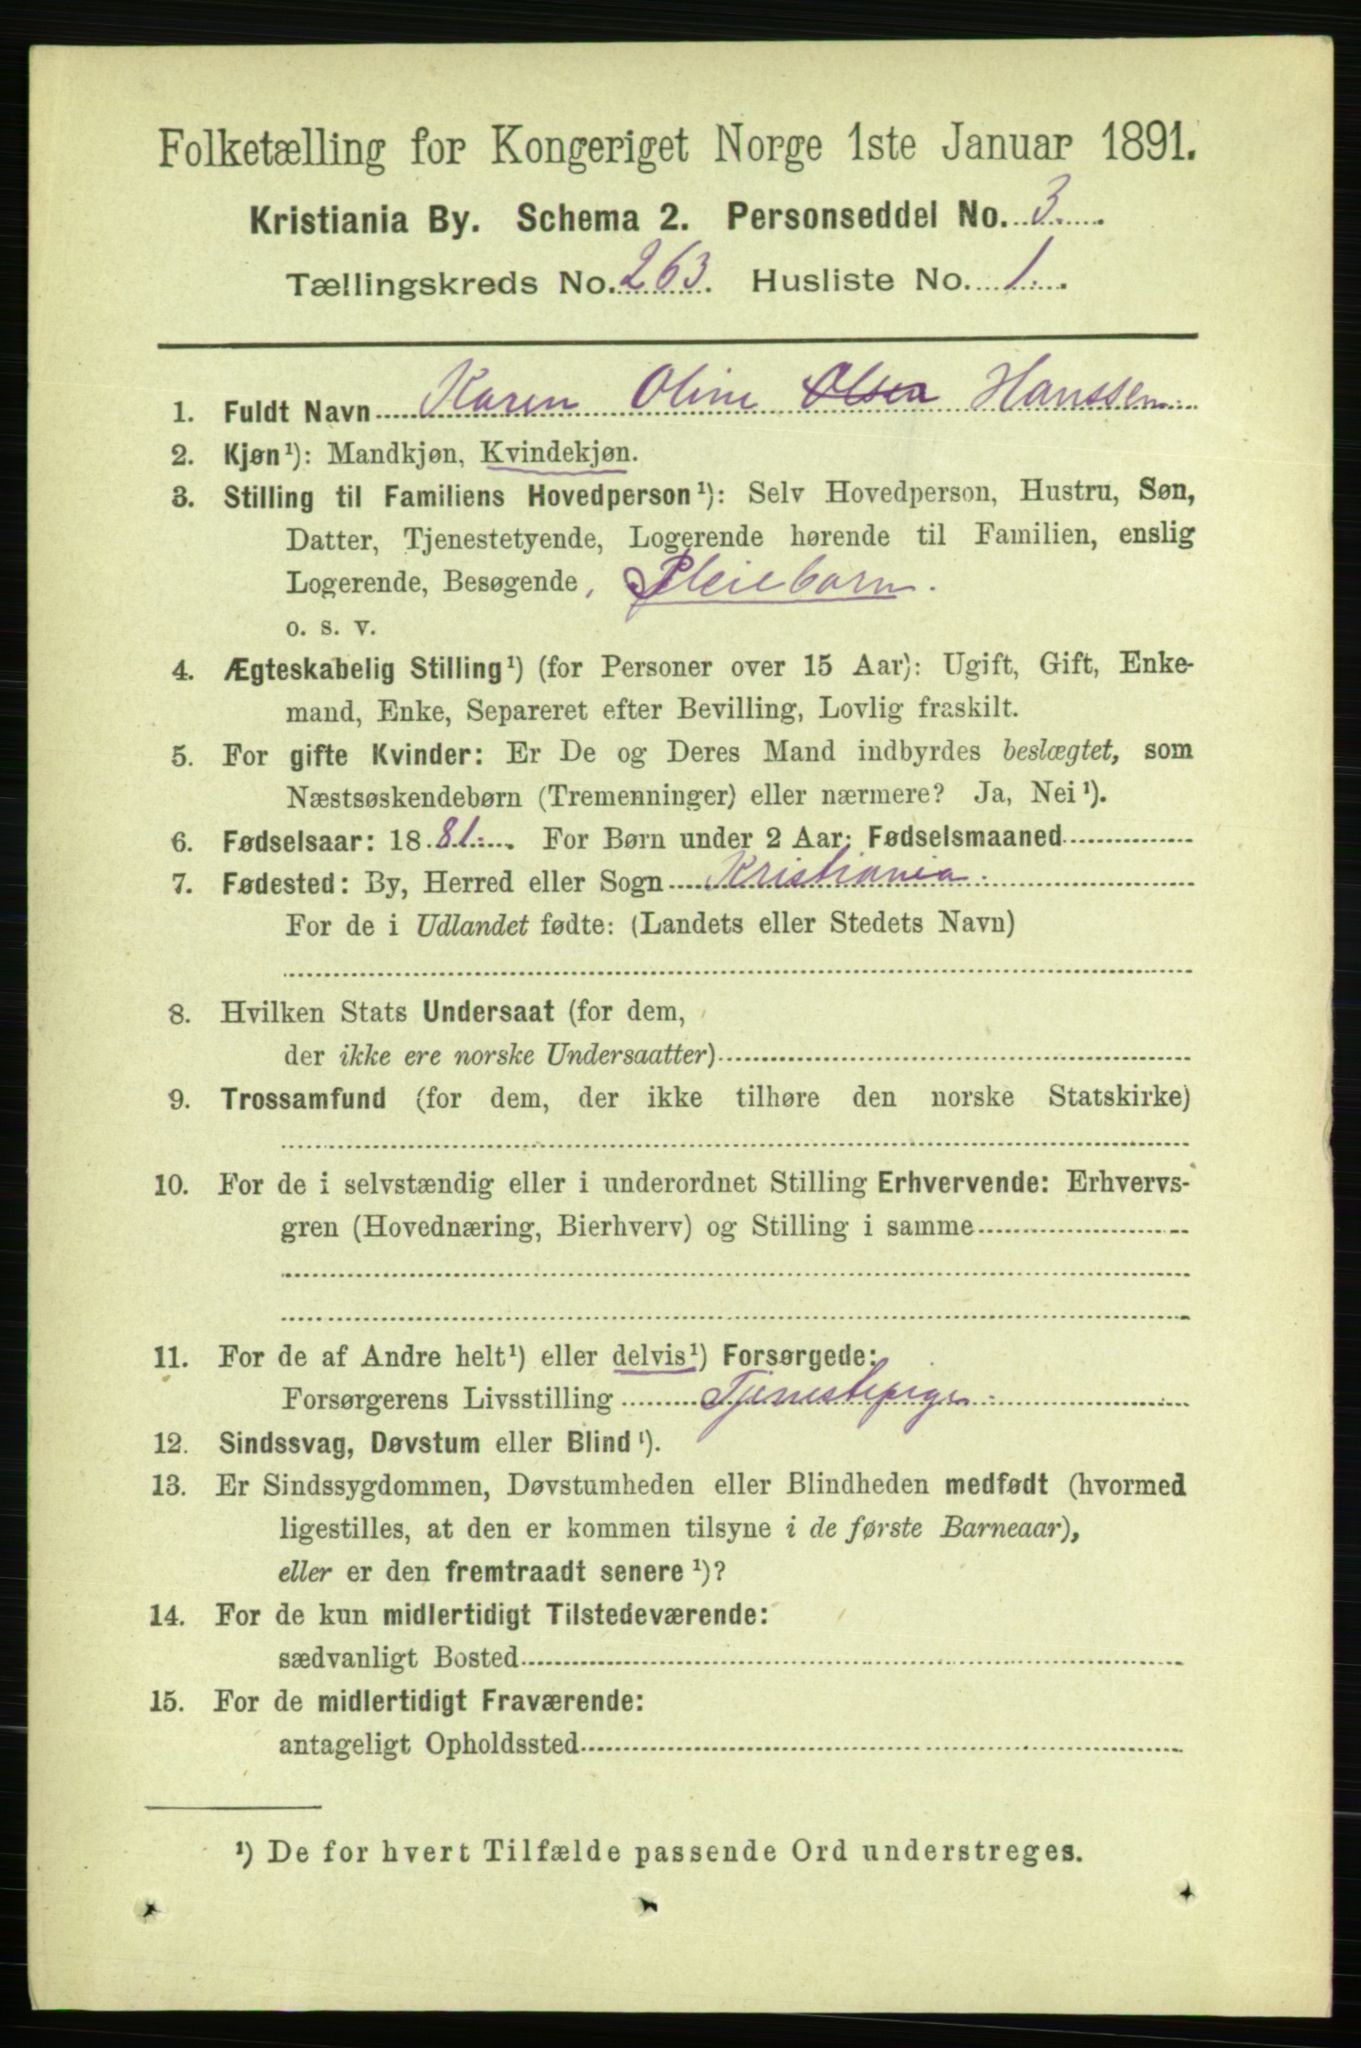 Folketælling for Kongeriget Norge 1ste Januar 1891.
Kristiania By. Schema 2. Personseddel No. 3
Tællingskreds No. 263. Husliste No. 1
1. Fuldt Navn Karen Oline Olsen Hanssen
2. Kjøn¹): Mandkjøn, Kvindekjøn.
3. Stilling til Familiens Hovedperson¹): Selv Hovedperson, Hustru, Søn,
Datter, Tjenestetyende, Logerende hørende til Familien, enslig
Logerende, Besøgende, Pleiebarn.
o. s. v.
4. Ægteskabelig Stilling¹) (for Personer over 15 Aar): Ugift, Gift, Enke-
mand, Enke, Separeret efter Bevilling, Lovlig fraskilt.
5. For gifte Kvinder: Er De og Deres Mand indbyrdes beslægtet, som
Næstsøskendebørn (Tremenninger) eller nærmere? Ja, Nei¹).
6. Fødselsaar: 1881. For Børn under 2 Aar: Fødselsmaaned
7. Fødested: By, Herred eller Sogn Kristiania.
For de i Udlandet fødte: (Landets eller Stedets Navn)
8. Hvilken Stats Undersaat (for dem,
der ikke ere norske Undersaatter)
9. Trossamfund (for dem, der ikke tilhøre den norske Statskirke)
10. For de i selvstændig eller i underordnet Stilling Erhvervende: Erhvervs-
gren (Hovednæring, Bierhverv) og Stilling i samme
11. For de af Andre helt¹) eller delvis¹) Forsørgede:
Forsørgerens Livsstilling Tjenestepige
12. Sindssvag, Døvstum eller Blind¹).
13. Er Sindssygdommen, Døvstumheden eller Blindheden medfødt (hvormed
ligestilles, at den er kommen tilsyne i de første Barneaar),
eller er den fremtraadt senere¹)?
14. For de kun midlertidigt Tilstedeværende:
sædvanligt Bosted
15. For de midlertidigt Fraværende:
antageligt Opholdssted
¹) De for hvert Tilfælde passende Ord understreges.